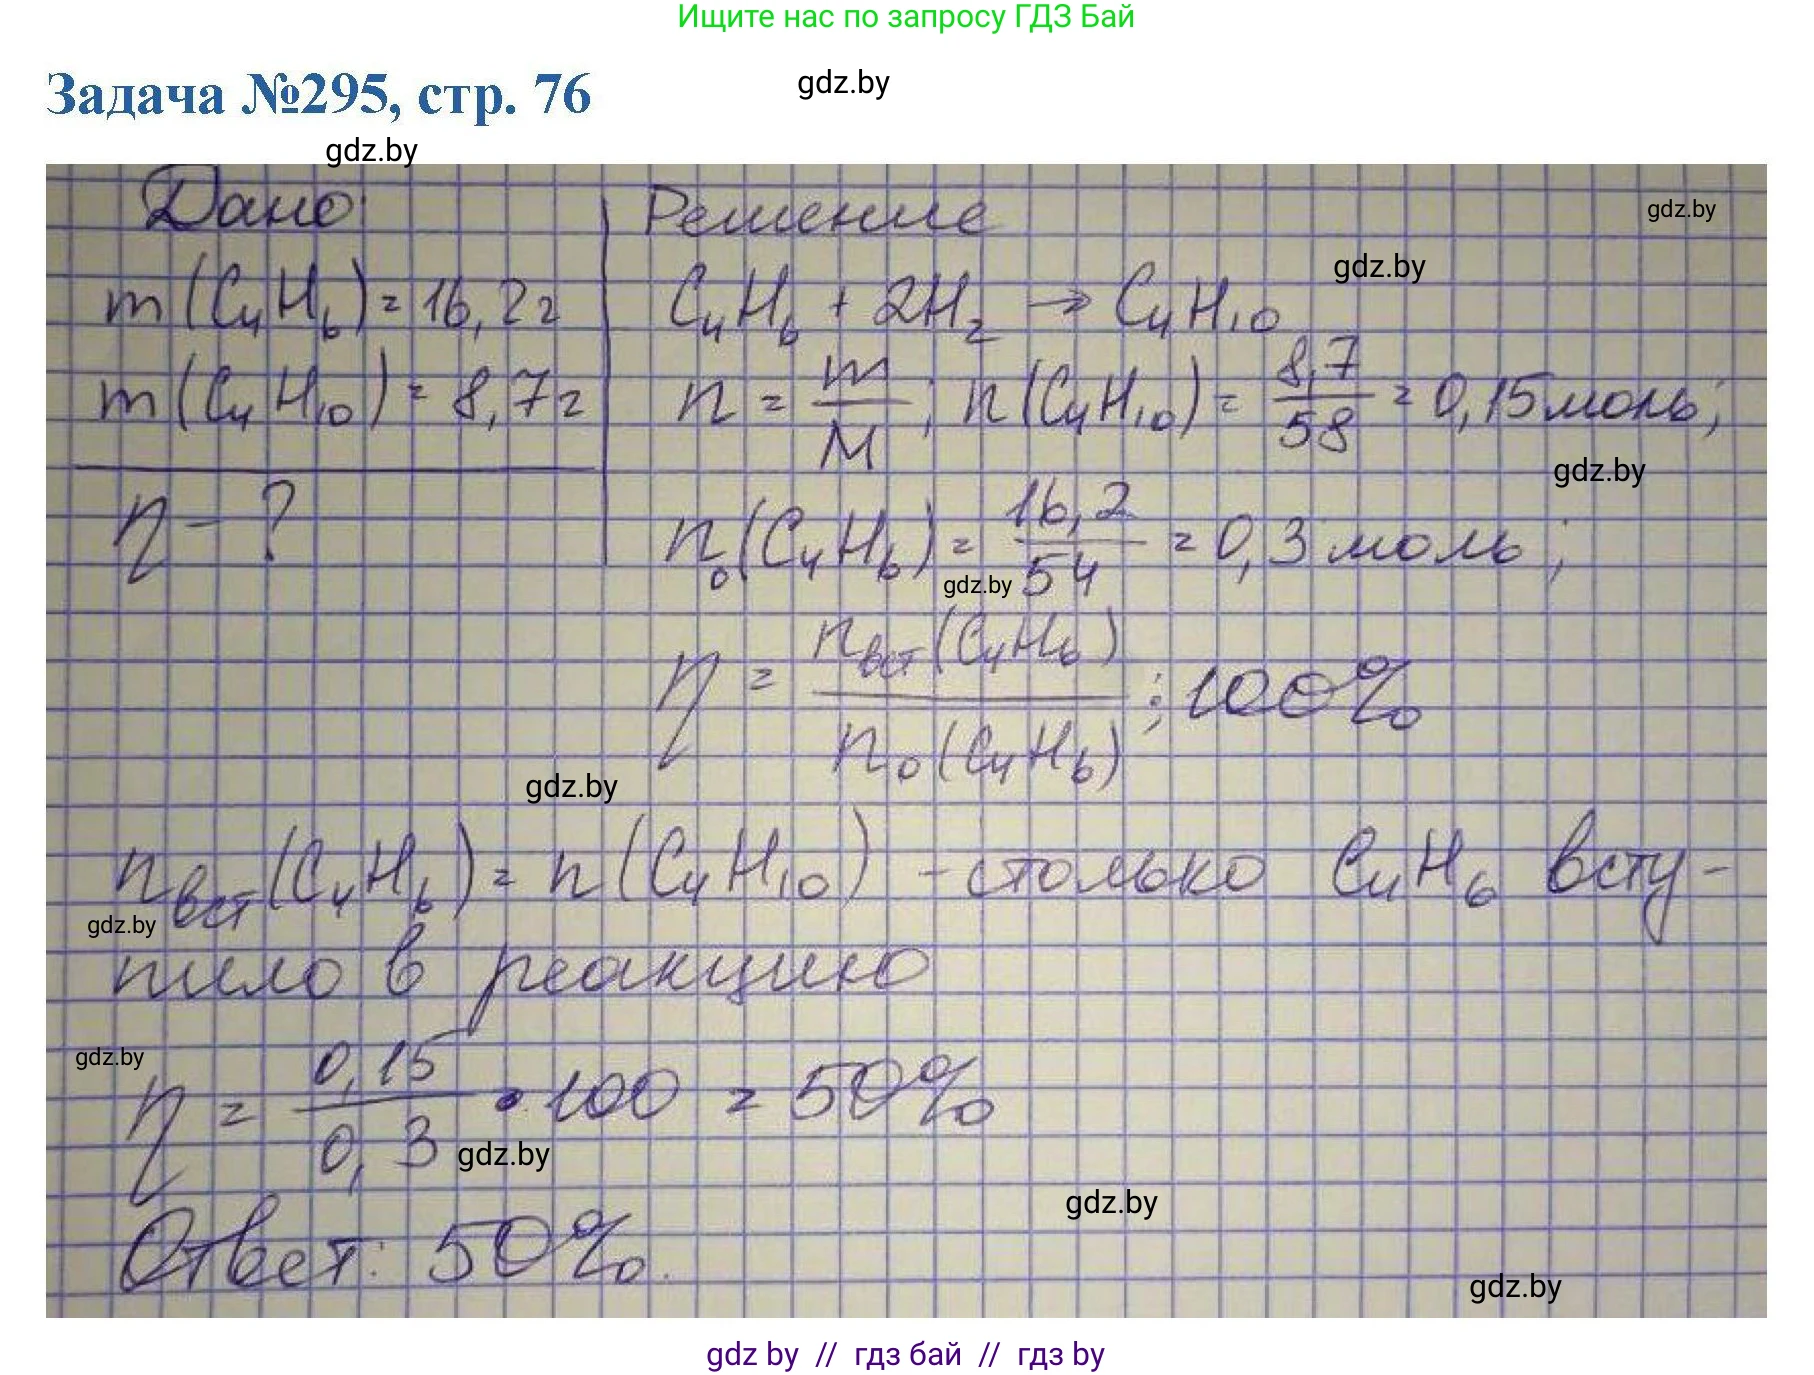 Ищите нас по запросу ГДЗ Бай
Задача №295, стр. 76
gdz.by
gdz.by
Дано:
Решение
gdz.by
m(C₄H₆) = 16,2г
C₄H₆ + 2H₂ → C₄H₁₀
gdz.by
m(C₄H₁₀) = 8,7г
n = m/M; n(C₄H₁₀) = 8,7/58 = 0,15моль;
gdz.by
η - ?
n₀(C₄H₆) = 16,2/54 = 0,3моль;
gdz.by
η = nвст(C₄H₆)/n₀(C₄H₆) ; 100%
gdz.by
nвст(C₄H₆) = n(C₄H₁₀) - столько C₄H₆ всту-
gdz.by
пило в реакцию
gdz.by
η = 0,15/0,3 • 100 = 50%
gdz.by
gdz.by
Ответ: 50%.
gdz.by
gdz by // гдз бай // гдз by